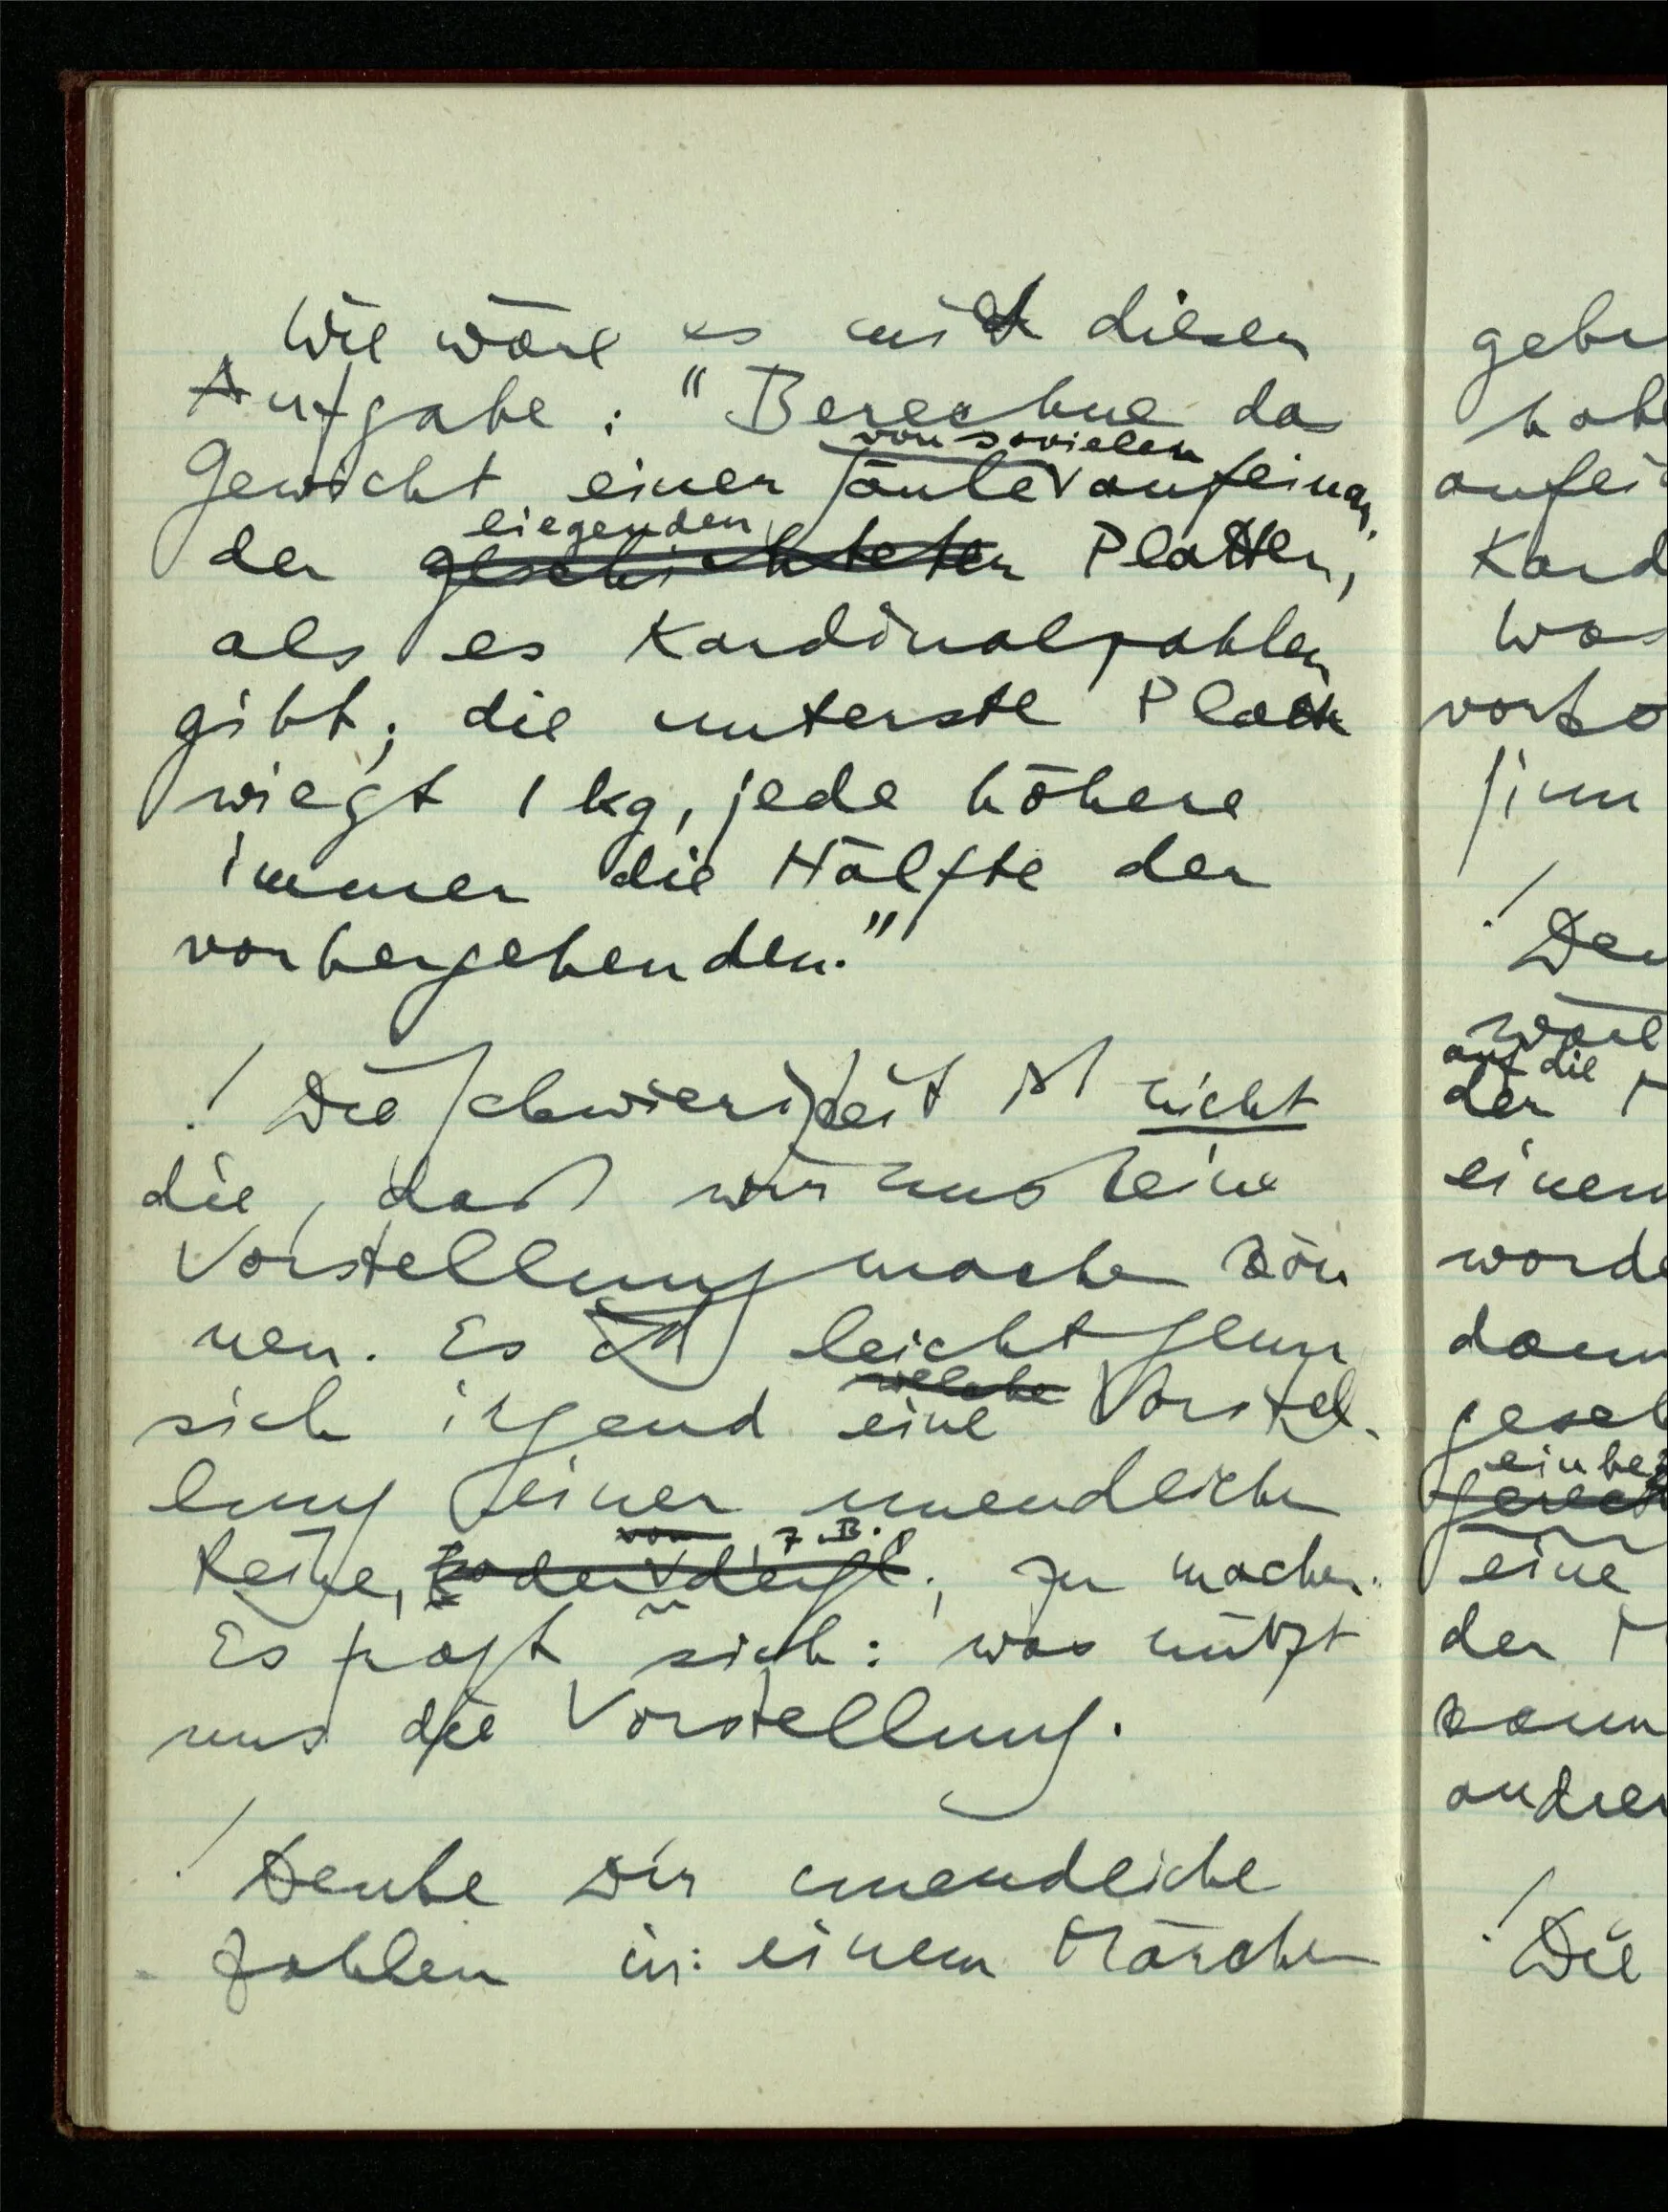 Wie wäre es mit dieser
Aufgabe: "Berechne das
von sovielen
Gewicht einer Säule aufeinan-
liegenden
der geschichteter Platten,
als es Kardinalzahlen
gibt; die unterste Platte
wiegt 1 kg, jede höhere
immer die Hälfte der
vorhergehenden."
! Die Schwierigkeit ist nicht
die, daß wir uns keine
Vorstellung machen kön
nen. Es ist leicht genug
welche
sich irgend eine Vorstel-
lung einer unendlichen
von z.B.
Reihe, oder dergl., zu machen.
Es fragt sich: was nützt
uns die Vorstellung.
! Denke Dir unendliche
Zahlen in einem Märchen
gebr
habe
aufei
Kard
Was
Sinn
! Den
wäre
auf die
der M
einem
worde
dann
einbe
eine
der M
kann
andrer
! Die